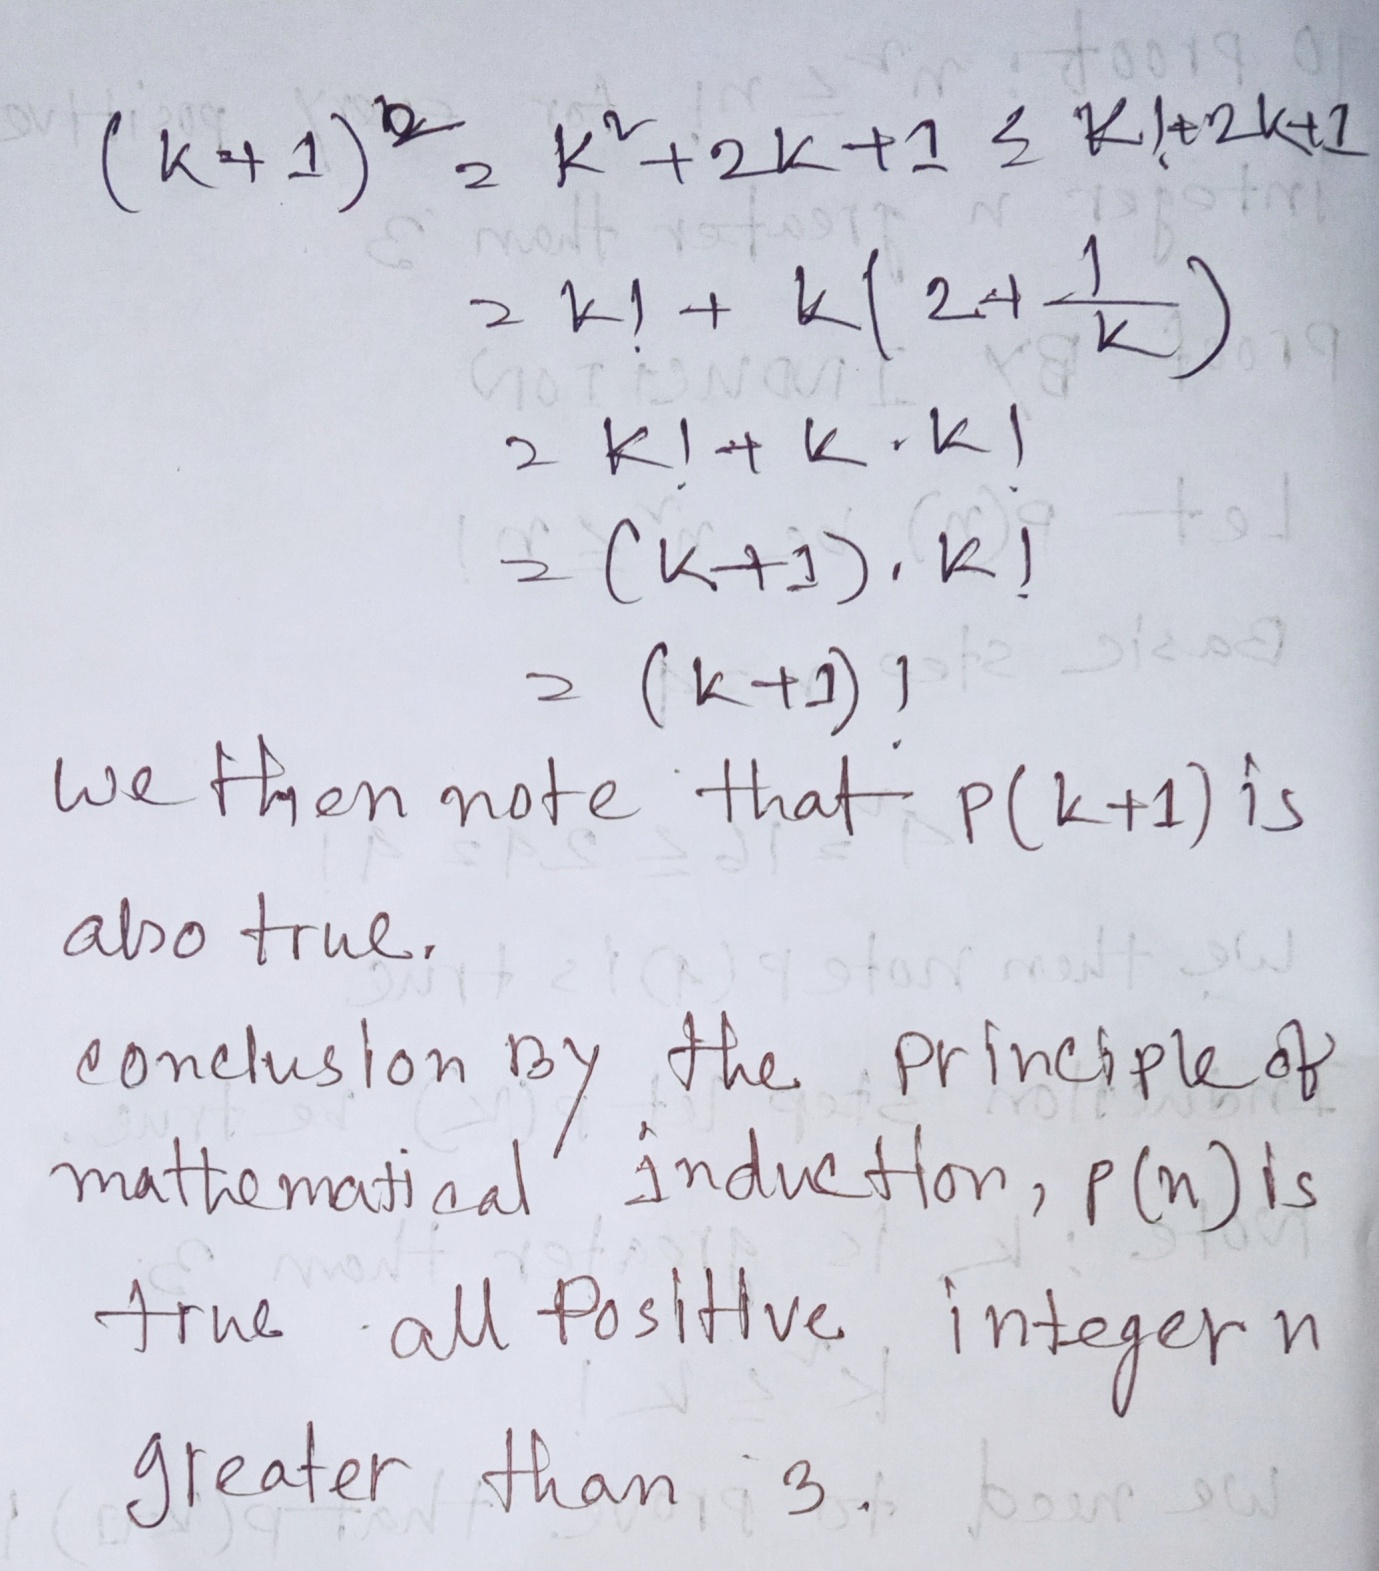 (k+1)² = k²+2k+1 ≤ k!+2k+1
= k! + k(2+1/k)
= k!+k.k!
= (k+1).k!
= (k+1)!
we then note that p(k+1) is
also true.
conclusion By the principle of
mathematical induction, p(n) is
true all Positive integer n
greater than 3.